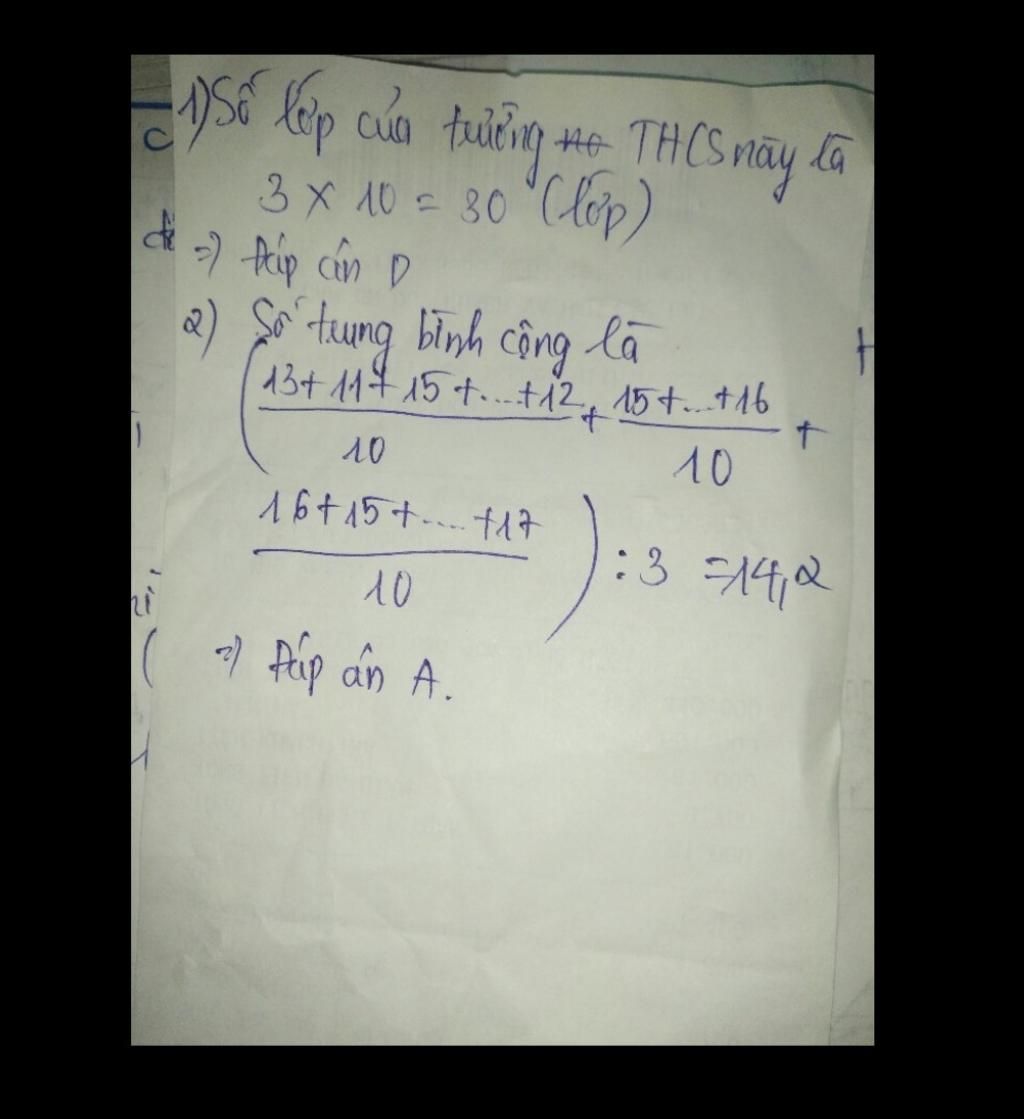 1) Số lớp của trường no THCS này là
3 × 10 = 30 (lớp)
=) Đáp án D
2) Số trung bình cộng là
( 13+11+15+...+12 / 10 + 15+...+16 / 10 +
16+15+.....+17 / 10 ) : 3 = 14,2
=) Đáp án A.